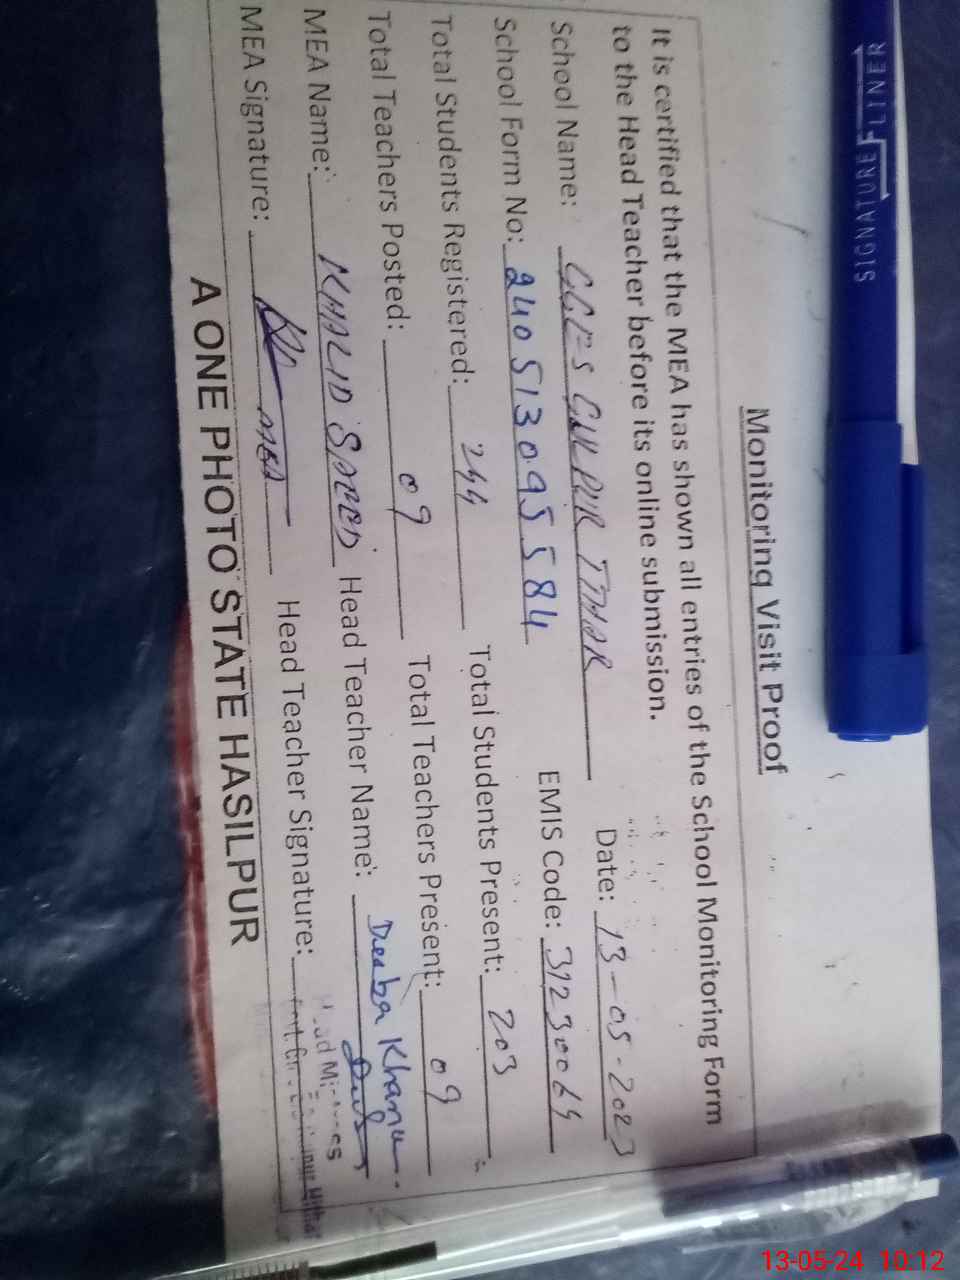 Monitoring Visit Proof
It is certified that the MEA has shown all entries of the School Monitoring Form
to the Head Teacher before its online submission.
School Name: Date: 13-05-2023
School Form No: 24051309 5584 EMIS Code: 31230064
Total Students Registered: 244 Total Students Present: 203
Total Teachers Posted: 09 Total Teachers Present: 09
MEA Name: KHALID SAEED Head Teacher Name:
MEA Signature: MEA Head Teacher Signature:
A ONE PHOTO STATE HASILPUR
SIGNATURE
FINELINER
13-05-24 10:12